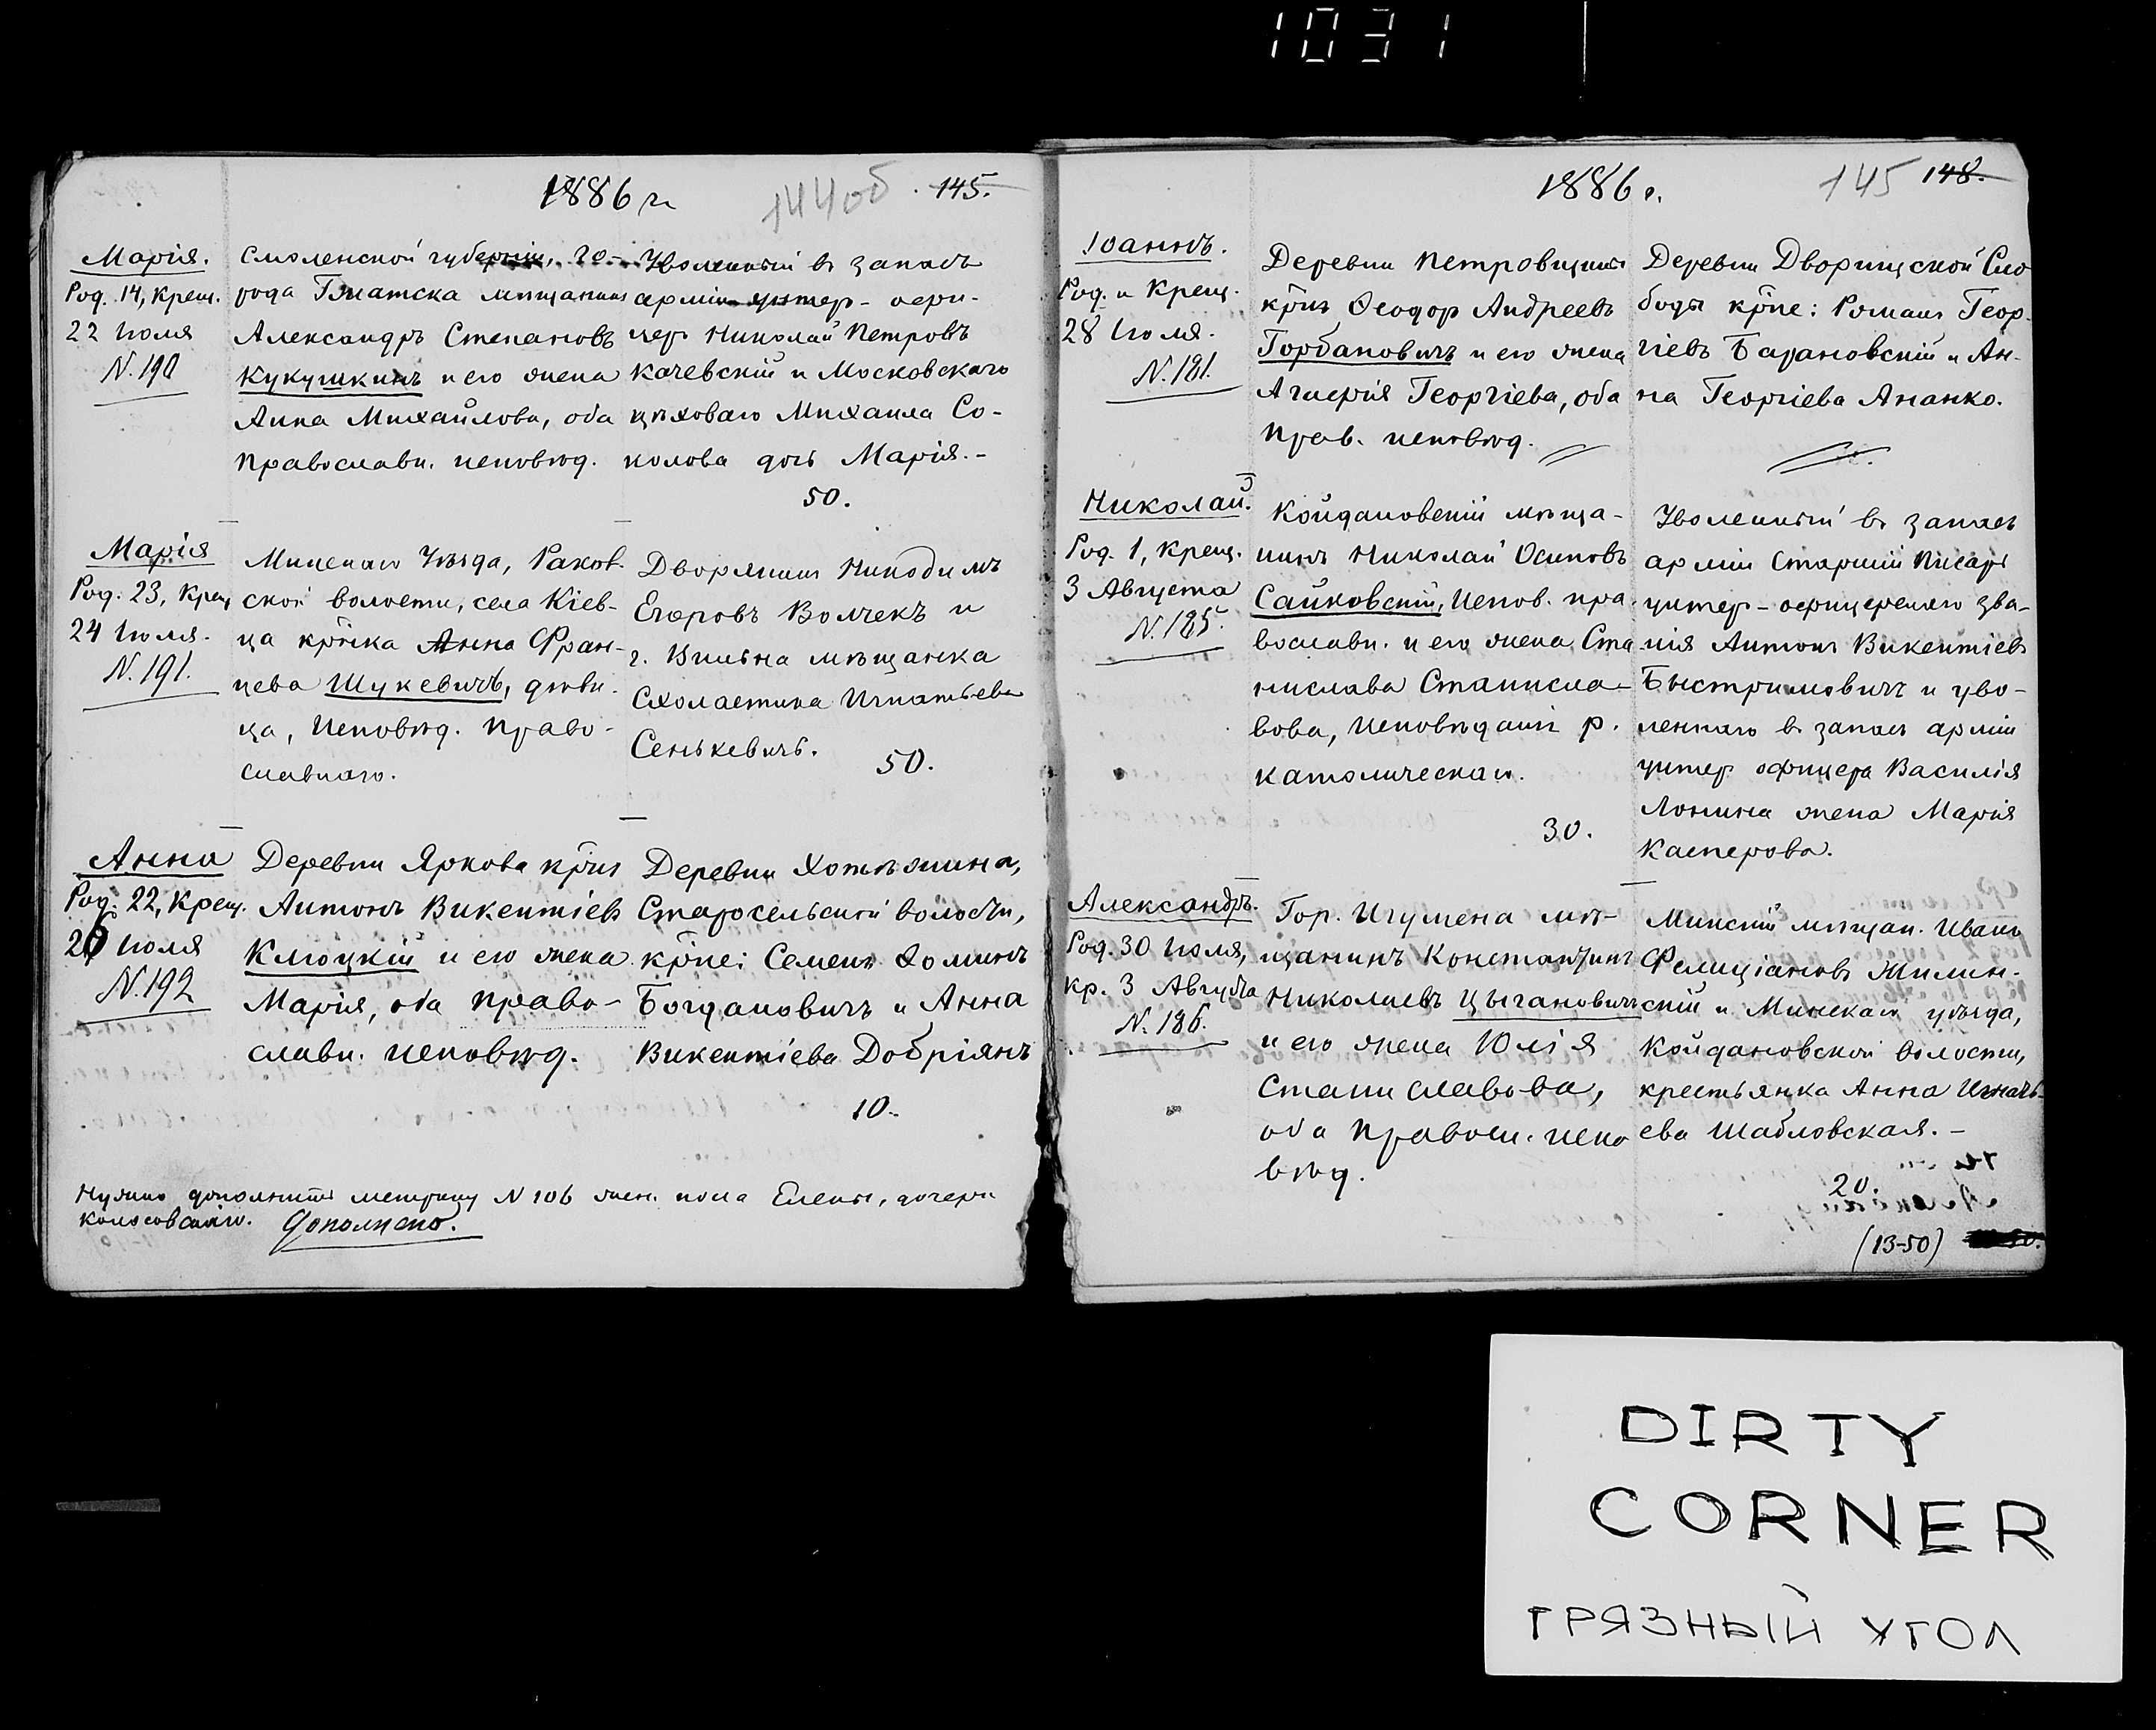 1031
1886 г.
144об
145.
Марія.
Род. 14, Крещ.
22 Іюля
N. 190
Смоленской губерніи, го-
рода Гжатска мѣщанинъ
Александръ Степановъ
Кукушкинъ и его жена
Анна Михайлова, оба
Православн. исповѣд.
Уволенный въ запасъ
арміи унтер-офи-
церъ Николай Петровъ
Качевскій и Московскаго
цѣховаго Михаила Со-
колова дочь Марія.-
50.
Марія
Род. 23, Крещ.
24 Іюля.
N. 191.
Минскаго Уѣзда, Раков-
ской волости, села Кіев-
ца кр̃нка Анна Фран-
цева Шукевичъ, дѣви-
ца, Исповѣд. Право-
славнаго.
Дворянинъ Никодимъ
Егоровъ Волчекъ и
г. Вильна мѣщанка
Схоластика Игнатьева
Сенькевичъ.
50.
Анна
Род. 22, Крещ.
26 Іюля
N. 192
Деревни Яркова кр̃нъ
Антонъ Викентіевъ
Клюцкій и его жена
Марія, оба право-
славн. исповѣд.
Деревни Хотѣжина,
Старосельской волости,
кр̃не: Семенъ Ѳоминъ
Богдановичъ и Анна
Викентіева Добріянъ
10.
Нужно дополнить метрику N 106 жен. пола Елены, дочери
Колосовскаго. Дополнено.
1886 г.
145
148.
Іоаннъ.
Род. и Крещ.
28 Іюля.
N. 181.
Деревни Петровщины
кр̃нъ Ѳеодор Андреевъ
Горбановичъ и его жена
Агиерія Георгіева, оба
Прав. исповѣд.
Деревни Дворищской Сло
боды кр̃не: Романъ Геор-
гіевъ Барановскій и Ан-
на Георгіева Ананко.
Николай.
Род. 1, Крещ.
3 Августа
N. 185.
Койдановскій мѣща-
нинъ Николай Осиповъ
Сайковскій, Испов. пра-
вославн. и его жена Ста
нислава Станисла-
вова, Исповѣданія р.
католическаго.
30.
Уволенный въ запасъ
арміи Старшій Писарь
унтер-офицерскаго зва-
нія Антонъ Викентіевъ
Быстримовичъ и уво-
леннаго въ запасъ арміи
унтер офицера Василія
Лонина жена Марія
Касперова.
Александръ.
Род. 30 Іюля,
кр. 3 Августа
N. 186.
Гор. Игумена мѣ-
щанинъ Константинъ
Николаевъ Цыгановичъ
и его жена Юлія
Станиславова,
оба Правосл. испо
вѣд.
Минскій мѣщан. Иванъ
Фелиціановъ Жилин-
скій и Минскаго уѣзда,
Койдановской волости,
крестьянка Анна Игнать-
ева Шабловская.-
20.
(13-50)
DIRTY
CORNER
ГРЯЗНЫЙ УГОЛ